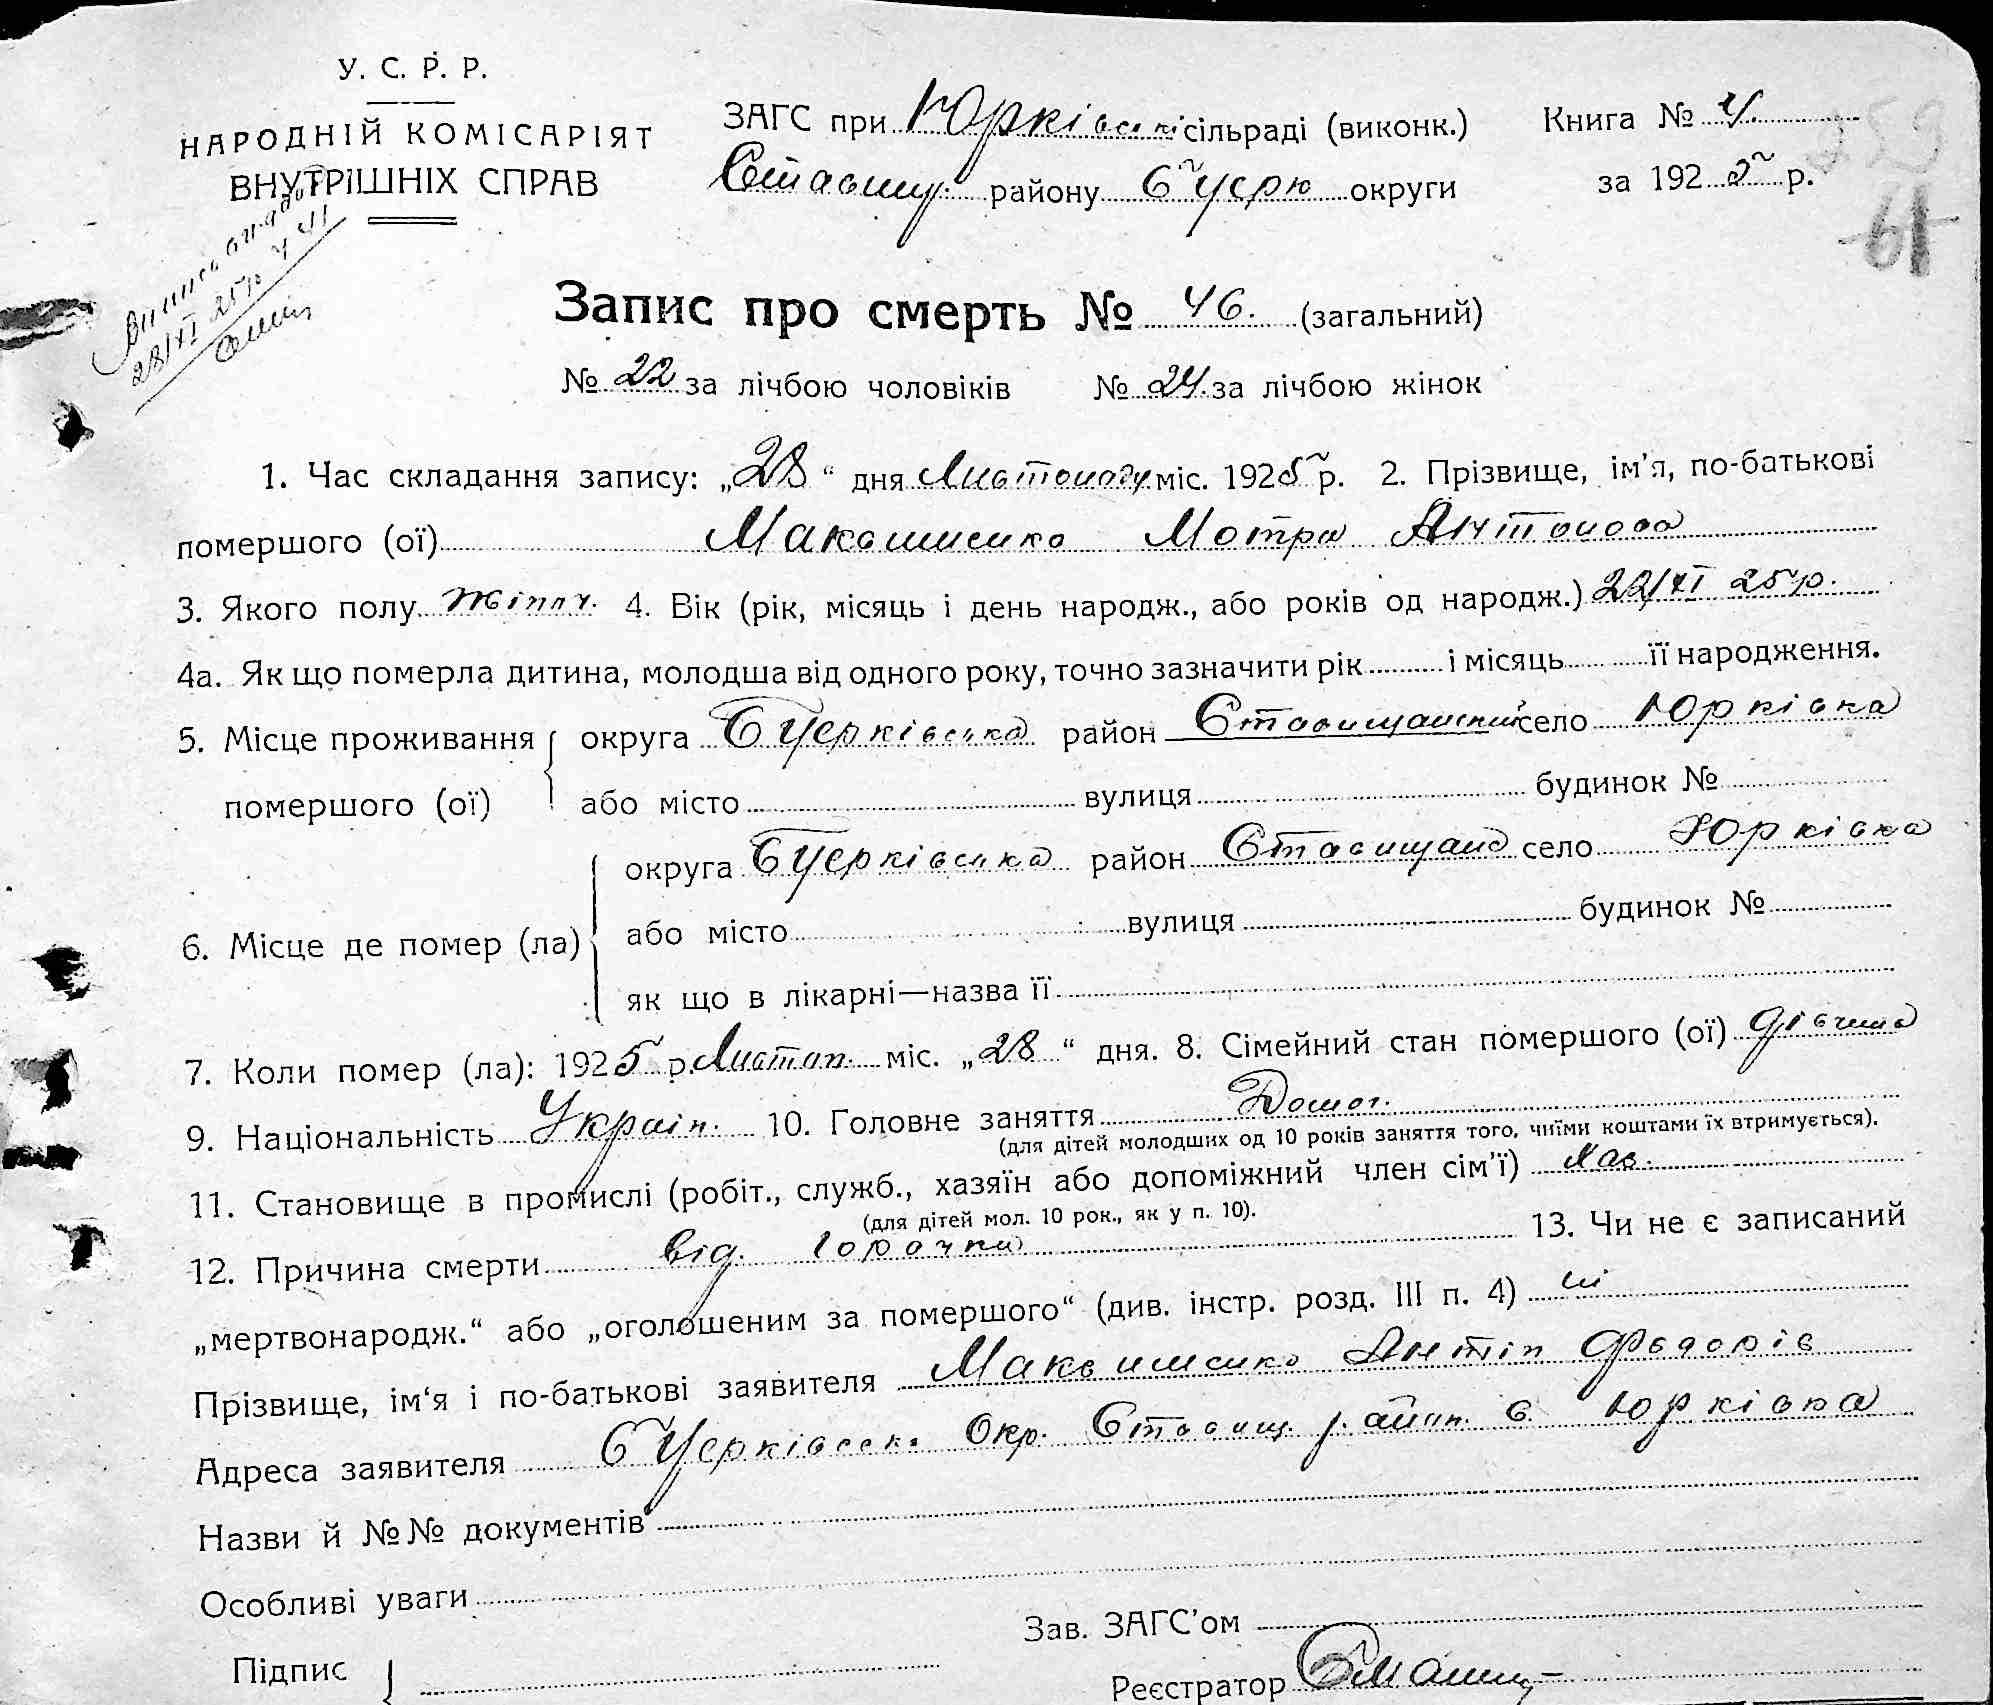 У. С. Р. Р.
НАРОДНІЙ КОМІСАРІЯТ
ВНУТРІШНІХ СПРАВ
ЗАГС при Юрківській сільраді (виконк.)
Ставищ. району Б Церк округи
Книга № 4.
за 1925 р.
61
28/XI 25р
Запис про смерть № 46. (загальний)
№ 22 за лічбою чоловіків № 24. за лічбою жінок
1. Час складання запису: „28“ дня Листопаду міс. 1925 р. 2. Прізвище, ім'я, по-батькові
помершого (ої) Максименко Мотра Антонова
3. Якого полу жіноч. 4. Вік (рік, місяць і день народж., або років од народж.) 22/XI 25р.
4а. Як що померла дитина, молодша від одного року, точно зазначити рік і місяць її народження.
5. Місце проживання помершого (ої) округа БЦерківська район Ставищанський село Юрківка
або місто вулиця будинок №
6. Місце де помер (ла) округа БЦерківська район Ставищанс село Юрківка
або місто вулиця будинок №
як що в лікарні—назва її
7. Коли помер (ла): 1925 р. Листоп. міс. „28“ дня. 8. Сімейний стан помершого (ої) дівчина
9. Національність Україн. 10. Головне заняття
(для дітей молодших од 10 років заняття того, чиїми коштами їх втримується).
11. Становище в промислі (робіт., служб., хазяїн або допоміжний член сім'ї)
(для дітей мол. 10 рок., як у п. 10).
12. Причина смерти від горячки 13. Чи не є записаний
„мертвонародж.“ або „оголошеним за помершого“ (див. інстр. розд. III п. 4) ні
Прізвище, ім'я і по-батькові заявителя Максименко Антін Федорів
Адреса заявителя БЦерківськ. Окр. Ставищ. район. с. Юрківка
Назви й №№ документів
Особливі уваги
Зав. ЗАГС'ом
Підпис
Реєстратор